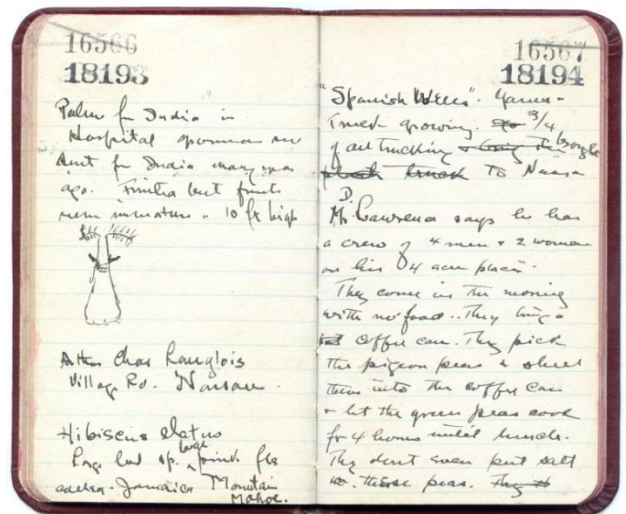 16566
18193
Palm fr India in
Hospital grounds
sent fr India many years
ago. but fruits
immature. 10 ft high
Char Langlois
Village Rd. Nassau.
Hibiscus elatus
large
Large lvd sp. pinnk fls
Jamaica Mountain
Mahoe.
16567
18194
"Spanish Wells".
growing. 3/4
of all trucking brought
truck To Nassau
D.
Mr. Lawrence says he has
a crew of 4 men & 2 women
on his 4 acre place.
They come in the morning
with no food. They bring a
coffee can. They pick
the pigeon peas & shell
them into the coffee can
& let the green peas cook
for 4 hours until lunch.
They dont even put salt
these peas. They